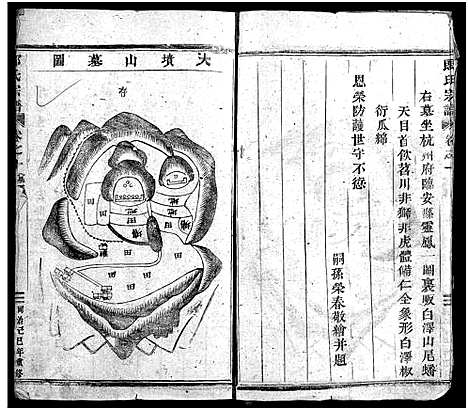 右墓坐杭州府臨安縣靈鳳 圖裏畈白澤山尾蟠
天目首飲苕川非獅非虎體備仁全象形白澤椒
衍瓜綿
恩榮防護世守不愆
嗣孫榮春敬繪並題
大墳山墓圖
存
地
地
地
田
塘
田
田
田
田
田
氏宗譜
同治己巳年重修